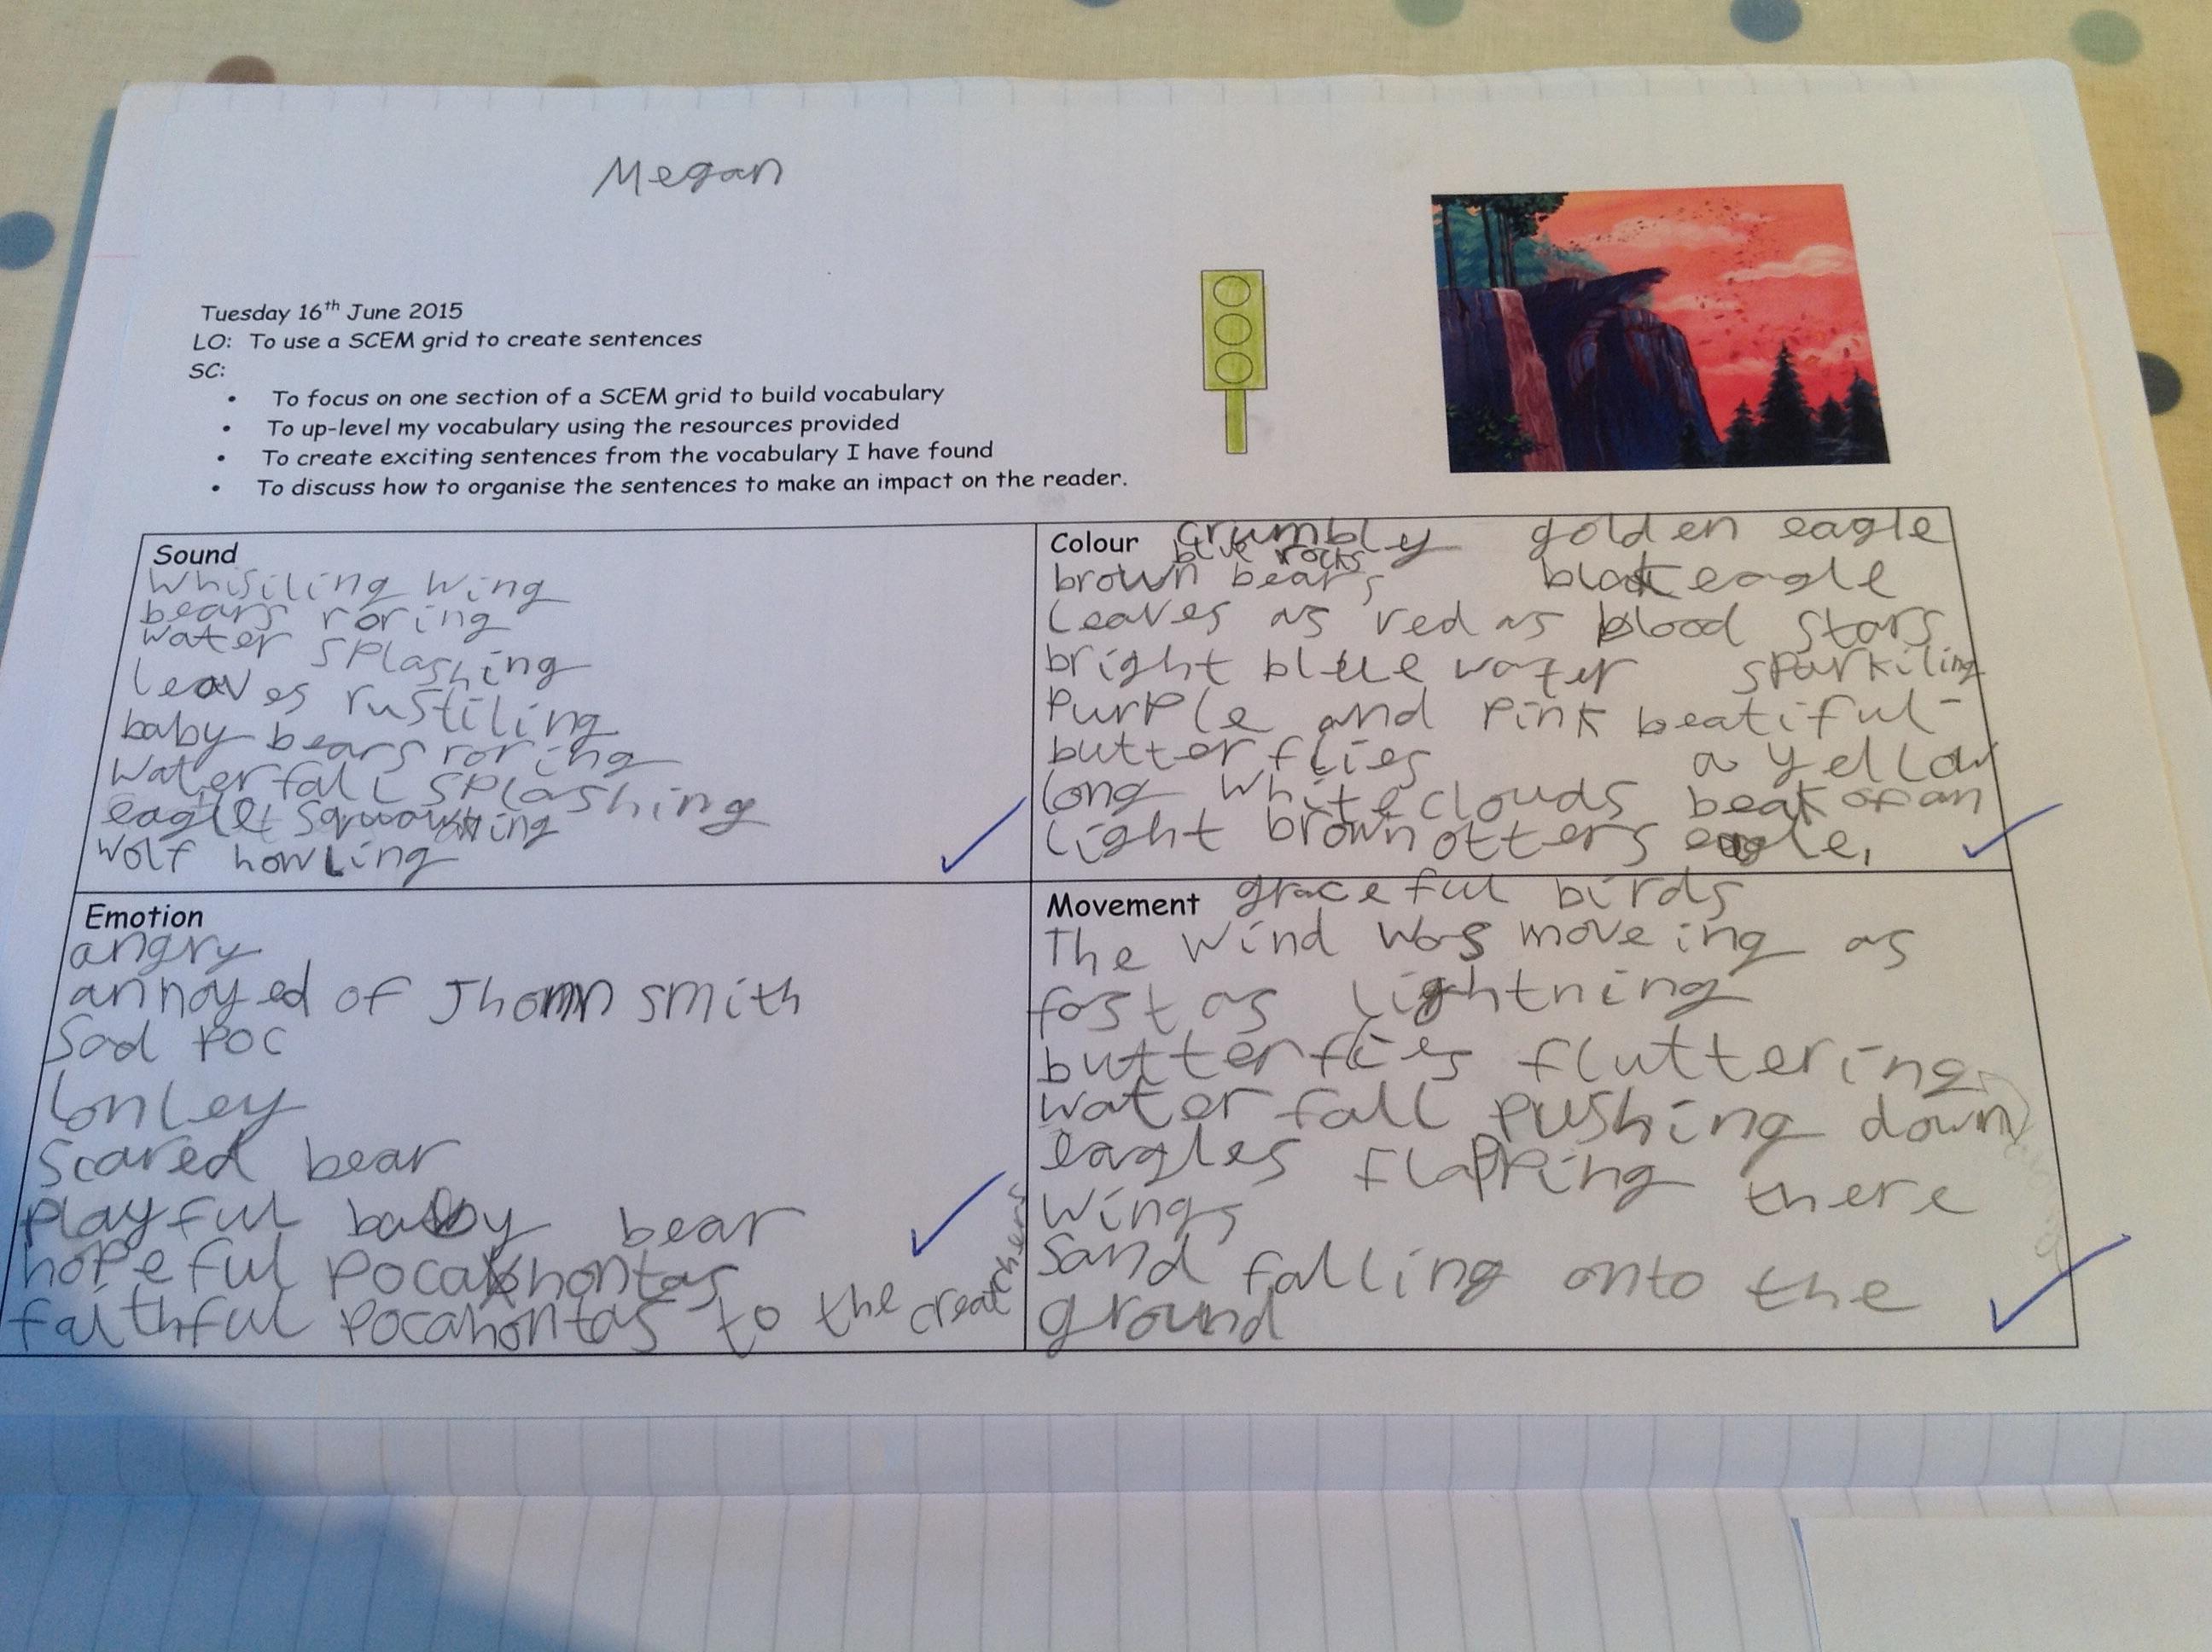 Megan
Tuesday 16th June 2015
LO: To use a SCEM grid to create sentences
SC:
• To focus on one section of a SCEM grid to build vocabulary
• To up-level my vocabulary using the resources provided
• To create exciting sentences from the vocabulary I have found
• To discuss how to organise the sentences to make an impact on the reader.
Sound
whisiling wing
bears roring
water splashing
leaves rustiling
baby bears roring
waterfall splashing
eagle
wolf howling
Colour crumbly
blue rocks
brown bears
leaves as red as blood
bright blue water
purple and pink beatiful-
butterflies
long white clouds
light brown otters
golden eagle
black eagle
stars
sparkiling
a yellow
beak of an
eagle.
Emotion
angry
annoyed of Jhonn smith
Sad Poc
lonley
Scared bear
playful baby bear
hopeful pocahontas
faithful pocahontas to the creatchers
Movement graceful birds
The wind was moveing as
fast as lightning
butterflies fluttering
water fall pushing down
eagles flapping there
wings
Sand falling onto the
ground